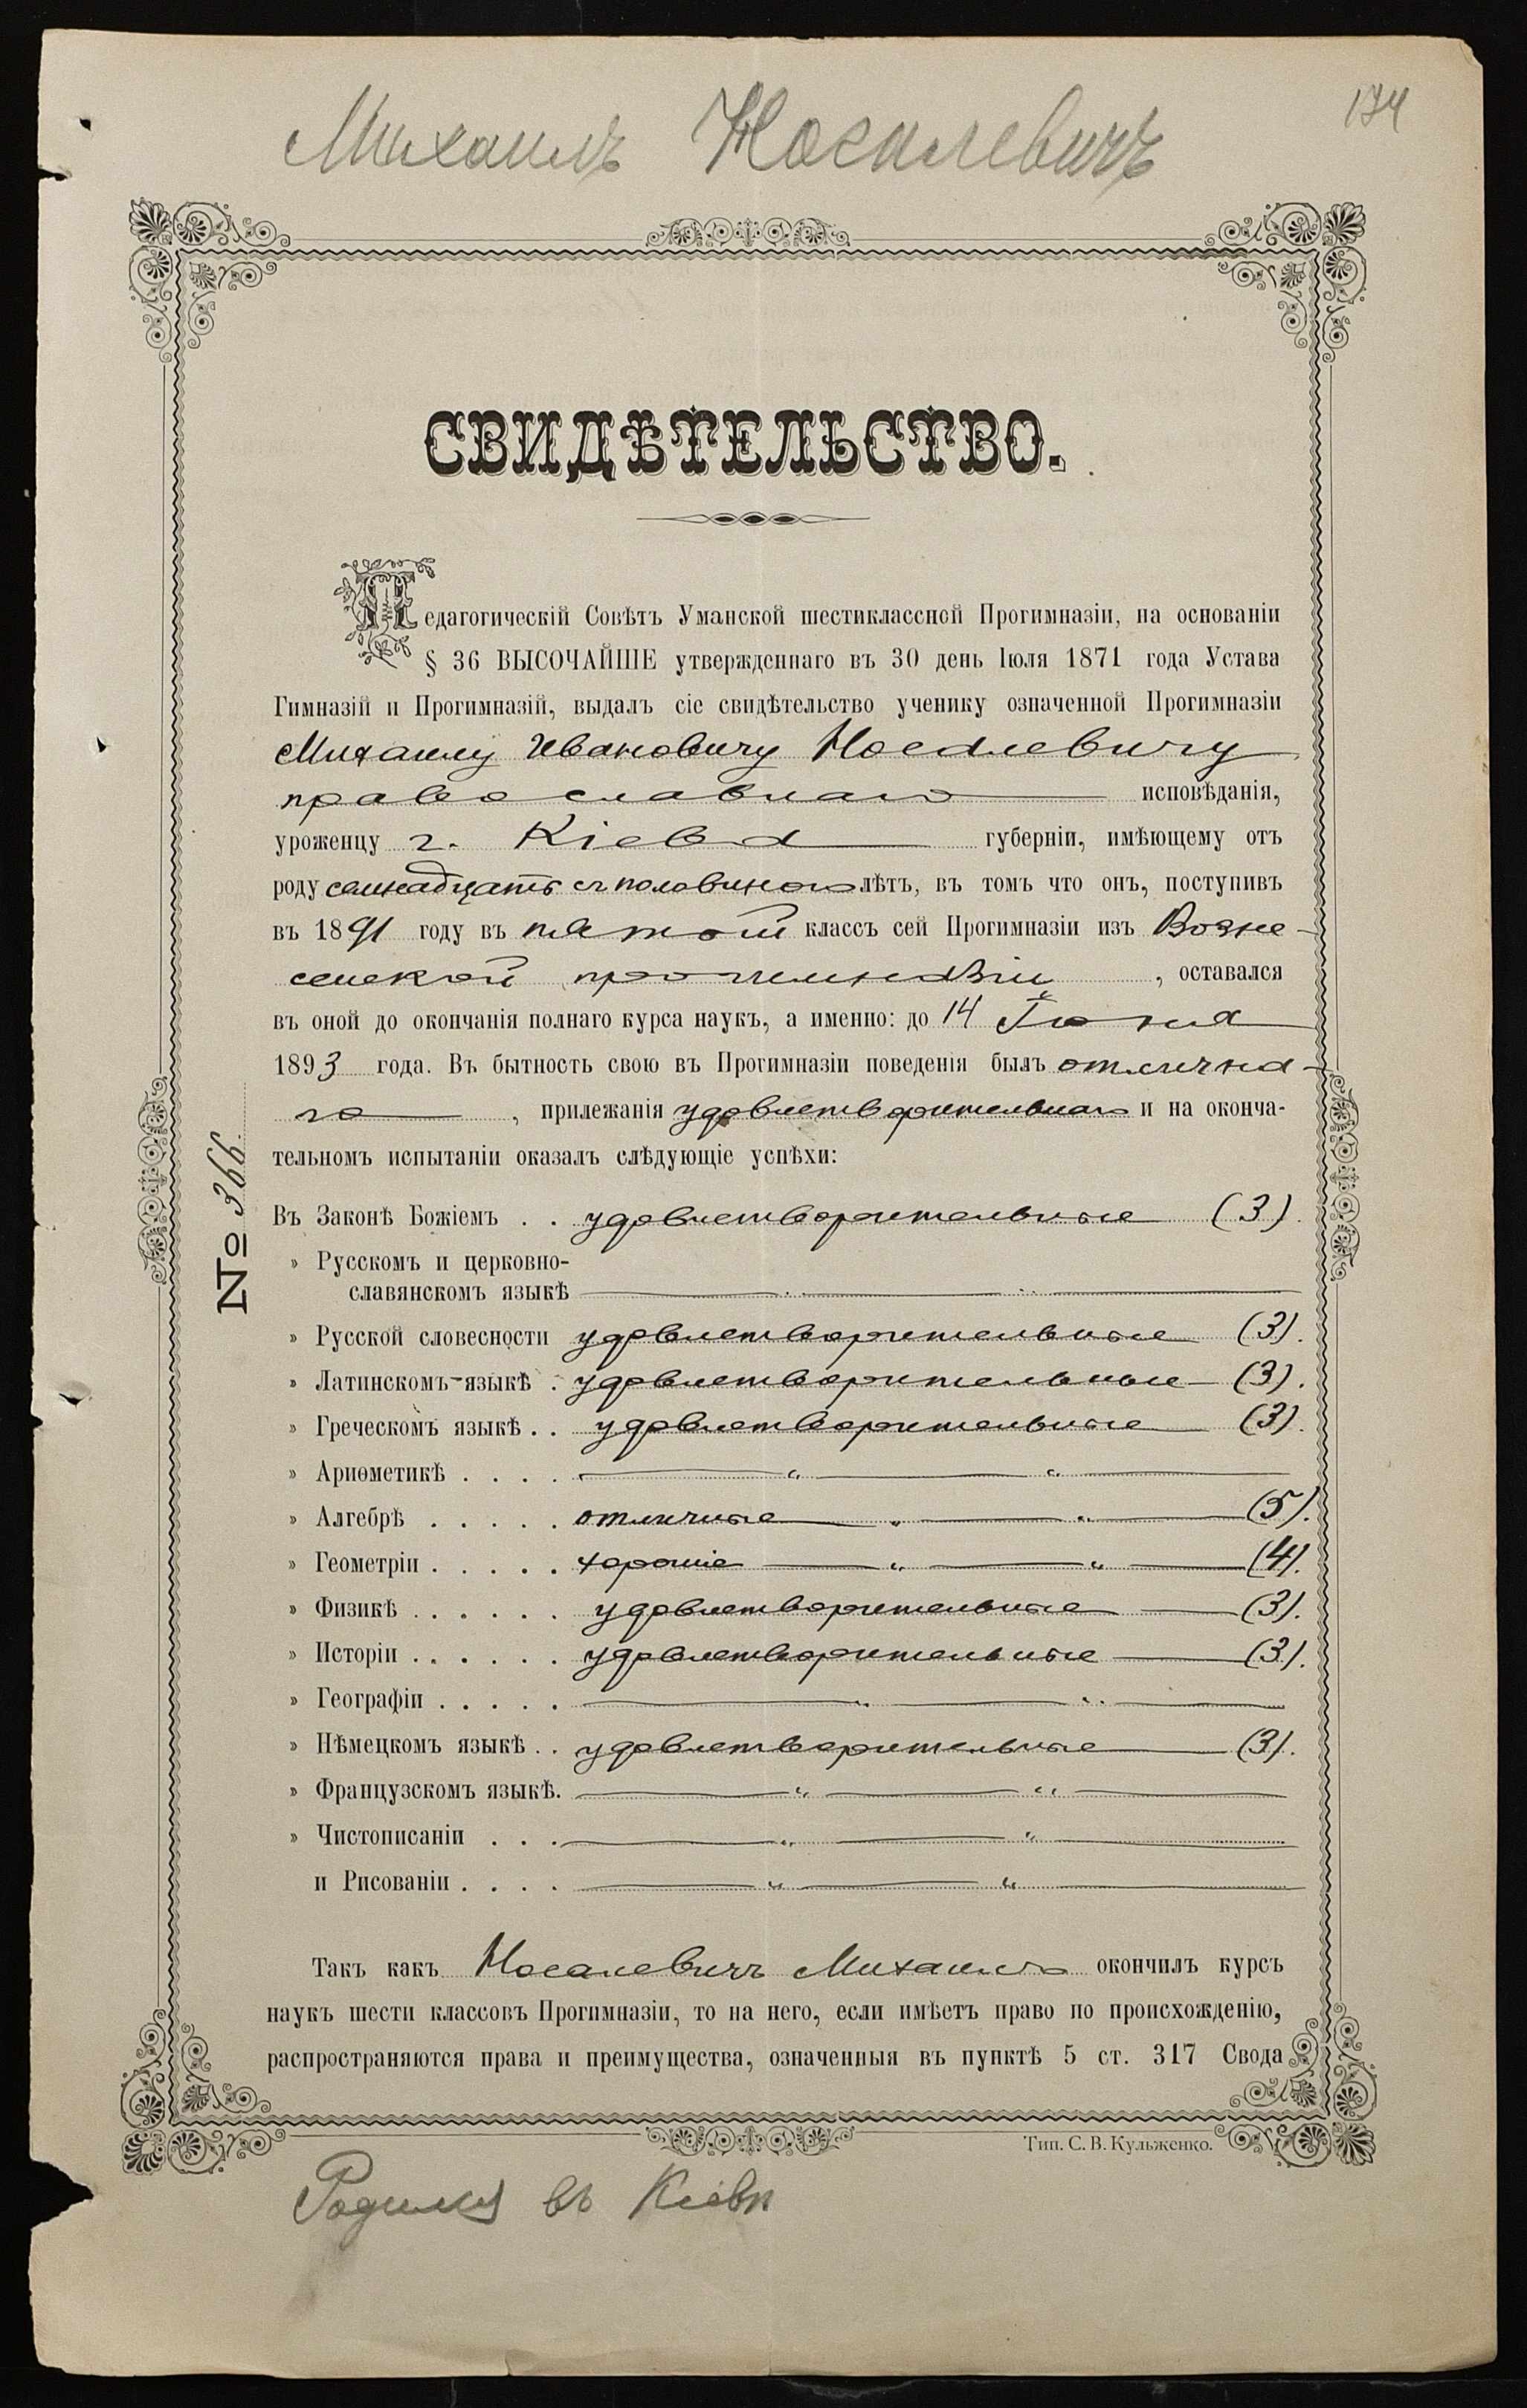 Михаилъ Носалевичъ
134
СВИДѢТЕЛЬСТВО.
Педагогическій Совѣтъ Уманской шестиклассной Прогимназіи, на основаніи
§ 36 ВЫСОЧАЙШЕ утвержденнаго въ 30 день Іюля 1871 года Устава
Гимназій и Прогимназій, выдалъ сіе свидѣтельство ученику означенной Прогимназіи
Михаилу Ивановичу Носалевичу
православнаго исповѣданія,
уроженцу г. Кіева губерніи, имѣющему отъ
роду семнадцать съ половиною лѣтъ, въ томъ что онъ, поступивъ
въ 1891 году въ пятый классъ сей Прогимназіи изъ Возне-
сенской прогимназіи, оставался
въ оной до окончанія полнаго курса наукъ, а именно: до 14 Іюня
1893 года. Въ бытность свою въ Прогимназіи поведенія былъ отлична-
го, прилежанія удовлетворительнаго и на оконча-
тельномъ испытаніи оказалъ слѣдующіе успѣхи:
№ 366.
Въ Законѣ Божіемъ . . удовлетворительные (3).
» Русскомъ и церковно-
славянскомъ языкѣ
» Русской словесности удовлетворительные (3).
» Латинскомъ языкѣ . удовлетворительные (3).
» Греческомъ языкѣ . . удовлетворительные (3).
» Ариѳметикѣ . . . . „ „
» Алгебрѣ . . . . . отличные „ „ (5).
» Геометріи . . . . . хорошіе „ „ (4).
» Физикѣ . . . . . . удовлетворительные (3).
» Исторіи . . . . . . удовлетворительные (3).
» Географіи . . . . . „ „
» Нѣмецкомъ языкѣ . . удовлетворительные (3).
» Французскомъ языкѣ. „ „
» Чистописаніи . . . „ „
и Рисованіи . . . . „ „
Такъ какъ Носалевичъ Михаилъ окончилъ курсъ
наукъ шести классовъ Прогимназіи, то на него, если имѣетъ право по происхожденію,
распространяются права и преимущества, означенныя въ пунктѣ 5 ст. 317 Свода
Тип. С. В. Кульженко.
въ Кіевѣ